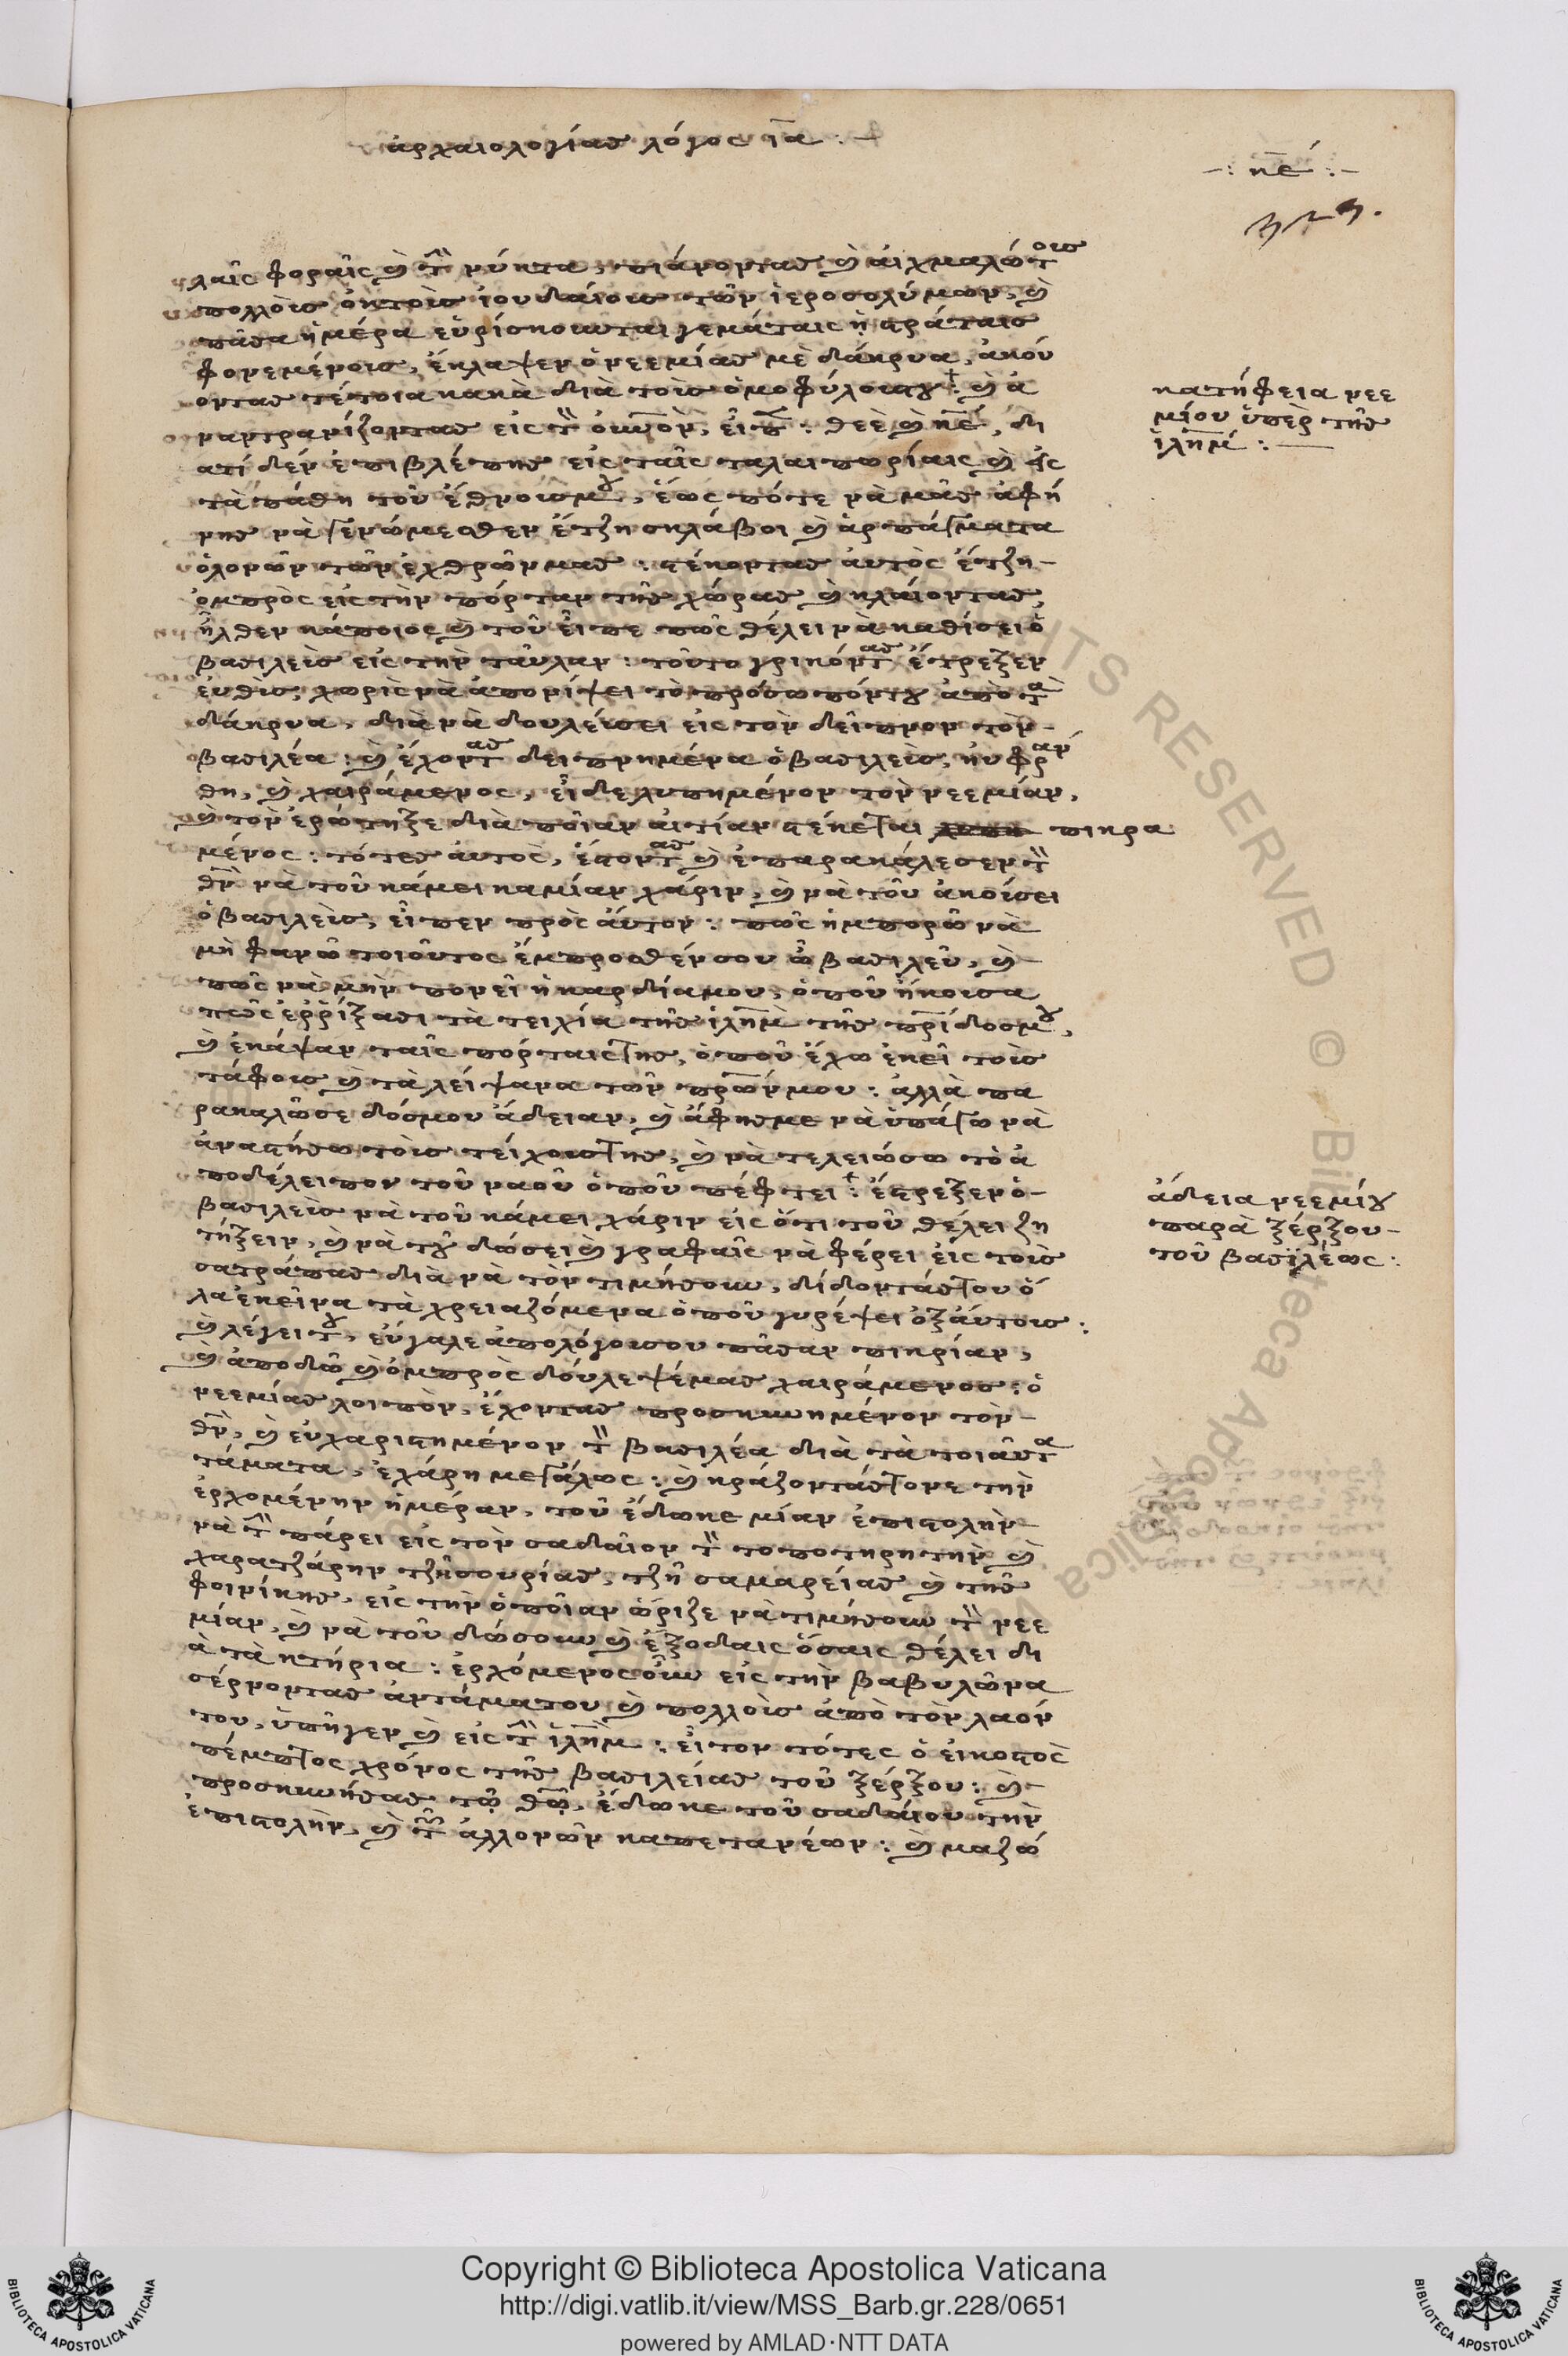 ἀρχαιολογίας λόγος ια :-
-: κε :-
λαῖς φοραῖς κὲ τ νύκτα, πιάνοντας κὲ αἰχμαλώτοις
πολλοὶς ὀκτοὶς ἰουδαίοις τῶν ἱεροσολύμων, κὲ
πᾶσα ἡμέρα εὑρίσκουνται γεμάταις ἡ στράταις
φονεμένοις, ἔκλαψεν ὁ νεεμίας μὲ δάκρυα, ἀκού
οντας τέτοια κακὰ διὰ τοὶς ὁμοφύλοις του : κὲ ἀ
ναντρανίζοντας εἰς τ οὐνὸν, εἶπ : θεὲ κὲ κε, δι
ατί δὲν ἐπιβλέπης εἰς ταῖς ταλαιπωρίαις κὲ εἰς
τὰ πάθη τοῦ ἔθνοις μου, ἕως πότε νὰ μᾶς ἀφή
νης νὰ γενώμεσθεν ἔτζη σκλάβοι κὲ ἁρπάγματα
ὁλονῶν τῶν ἐχθρῶν μας : στέκοντας αὐτὸς ἔτζη-
ὀμπρὸς εἰς τὴν πόρταν τῆς χώρας κὲ κλαίοντας,
ἦλθεν κάποιος κὲ τοῦ εἶπε πῶς θέλει νὰ καθίσει ὁ
βασιλεὶς εἰς τὴν ταύλαν : τοῦτο γρικόντας ἔτρεξεν
εὐθὶς, χωρὶς νὰ ἀπονίψει τὸ πρόσωπόν του ἀπὸ τὰ
δάκρυα, διὰ νὰ δουλείσει εἰς τὸν δεῖπνον τὸν-
βασιλέα : κὲ ἔχοντας δειπνημένα ὁ βασιλεὶς, ηὐφράν
θη, κὲ χαιράμενος, εἶδε λυπημένον τὸν νεεμίαν,
κὲ τὸν ἐρώτηξε διὰ ποῖαν αἰτίαν στέκεται πικρα
μένος : τότες αὐτὸς, ἔστοντας κὲ ἐπαρακάλεσεν τ
θν νὰ τοῦ κάμει καμίαν χάριν, κὲ νὰ τοῦ ἀκούσει
ὁ βασιλεὶς, εἶπεν πρὸς αὐτον : πῶς ἡμπορῶ νὰ
μὴ φανῶ ποιοῦτος ἔμπροσθέν σου ὦ βασιλεῦ, κὲ-
πῶς νὰ μὴν πονεῖ ἡ καρδία μου, ὁποῦ ἤκοισα
πῶς ἐρρίξασι τὰ τειχία τῆς ιλημ τῆς πρίδος μου,
κὲ ἐκάψαν ταῖς πόρταις της, ὁποῦ ἔχω ἐκεῖ τοὶς
τάφοις κὲ τὰ λείψανα τῶν πρων μου : ἀλλὰ πα
ρακαλῶσε δόσμου ἄδειαν, κὲ ἄφησμε νὰ ὑπάγω νὰ
ἀναστήσω τοὶς τείχοις της, κὲ νὰ τελειώσω τὸ ἀ
ποδέλειπον τοῦ ναοῦ ὁποῦ πέφτει : ἔστρεξεν ὁ-
βασιλεὶς νὰ τοῦ κάμει χάριν εἰς ὅτι τοῦ θέλει ζη
τήξειν, κὲ νὰ τοῦ δώσει κὲ γραφαῖς νὰ φέρει εἰς τοὶς
σατράπας διὰ νὰ τὸν τιμήσουν, δίδοντάς του ὅ
λα ἐκεῖνα τὰ χρειαζόμενα ὁποῦ γυρέψει ὀξ αὐτοὶς :
κὲ λέγει του, εὔγαλε ἀπολόγοισου πᾶσαν πικρίαν,
κὲ ἀποδῶ κὲ ὀμπρὸς δούλεψέ μας χαιράμενος : ὁ
νεεμίας λοιπὸν, ἔχοντας προσκυνημένον τὸν-
θν, κὲ εὐχαριστημένον τ βασιλέα διὰ τὰ ποιαῦτα
τάματα, ἐχάρη μεγάλως : κὲ κράζοντάς τονε τὴν
ἐρχομένην ἡμέραν, τοῦ ἔδωκε μίαν ἐπιστολὴν-
νὰ τ πάρει εἰς τὸν σαδαῖον τ τοποτηρητὴν κὲ
χαρατζάρην τζῆ σουρίας, τζῆ σαμαρείας κὲ τῆς
φοινίκης, εἰς τὴν ὁποῖαν ὥριζε νὰ τιμήσουν τ νεε
μίαν, κὲ νὰ τοῦ δώσουν κὲ ἔξοδαις ὅσαις θέλει δι
ὰ τὰ κτήρια : ἐρχόμενος οὖν εἰς τὴν βαβυλῶνα
σέρνοντας ἀντάμα του κὲ πολλοὶς ἀπὸ τὸν λαόν
του, ὑπῆγεν κὲ εἰς τ ιλημ : εἶτον τότες ὁ εἰκοστὸς
πέμπτος χρόνος τῆς βασιλείας τοῦ ξέρξου : κὲ-
προσκυνήσας τῷ θῷ, ἔδωκε τοῦ σαδαίου τὴν
ἐπιστολὴν, κὲ τ ἀλλονῶν καπετανέων : κὲ μαζώ
κατήφεια νεε
μίου ὑπὲρ τῆς
ιλημ :-
ἄδεια νεεμίου
παρὰ ξέρξου-
τοῦ βασιλέως :
ALL RIGHTS RESERVED © Biblioteca Apostolica Vaticana
Copyright © Biblioteca Apostolica Vaticana
http://digi.vatlib.it/view/MSS_Barb.gr.228/0651
powered by AMLAD·NTT DATA
BIBLIOTECA APOSTOLICA VATICANA
BIBLIOTECA APOSTOLICA VATICANA